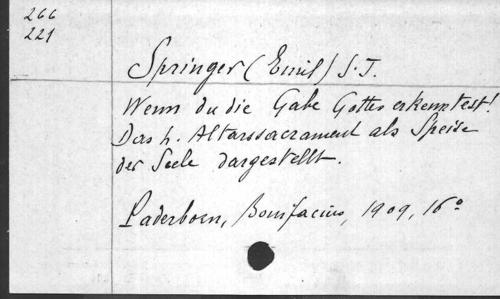 266
221
Springer (Emil) S.J.
Wenn du die Gabe Gottes erkenntest!
Das h. Altarssacrament als Speise
der Seele dargestellt.
Paderborn, Bonifacius, 1909, 16°